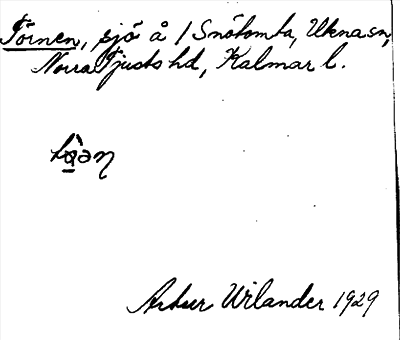 Törnen, sjö å 1 Snötomta, Ukna sn,
Norra Tjusts hd, Kalmar l.
Arthur Wilander 1929